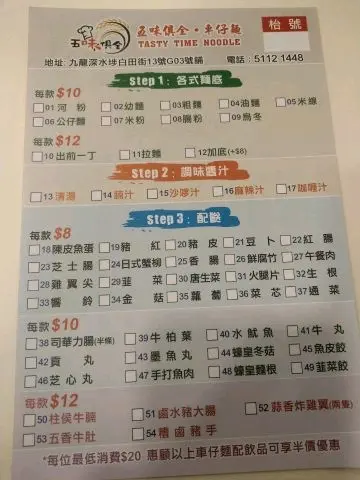 五味俱全
五味俱全·車仔麵
TASTY TIME NOODLE
枱號
地址: 九龍深水埗白田街13號G03號舖 電話: 5112 1448
step 1: 各式麵底
每款$10
01河粉 02幼麵 03粗麵 04油麵 05米線
06公仔麵 07米粉 08腸粉 09烏冬
每款$12
10出前一丁 11拉麵 12加底(+$8)
Step 2: 調味醬汁
13清湯 14腩汁 15沙嗲汁 16麻辣汁 17咖喱汁
Step 3: 配餸
每款$8
18陳皮魚蛋 19豬紅 20豬皮 21豆卜 22紅腸
23芝士腸 24日式蟹柳 25香腸 26鮮腐竹 27午餐肉
28雞翼尖 29韮菜 30唐生菜 31火腿片 32生根
33響鈴 34金菇 35蘿蔔 36菜芯 37通菜
每款$10
38司華力腸(半條) 39牛柏葉 40水魷魚 41牛丸
42貢丸 43墨魚丸 44蠔皇冬菇 45魚皮餃
46芝心丸 47手打魚肉 48蠔皇麵根 49韮菜餃
每款$12
50柱侯牛腩 51鹵水豬大腸 52蒜香炸雞翼(兩隻)
53五香牛肚 54糟鹵豬手
*每位最低消費$20 惠顧以上車仔麵配飲品可享半價優惠